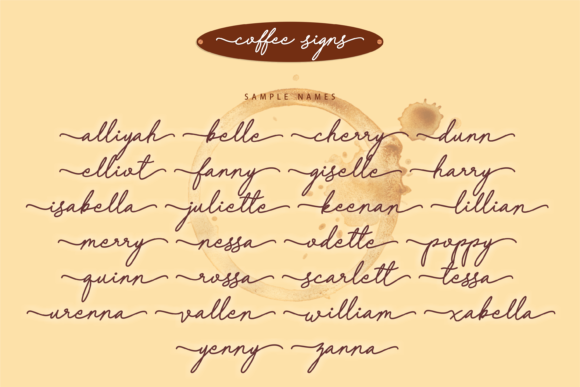 coffee signs
SAMPLE NAMES
alliyah belle cherry dunn
elliot fanny giselle harry
isabella juliette keenan lillian
merry nessa odette poppy
quinn rossa scarlett tessa
urenna vallen william xabella
yenny zanna